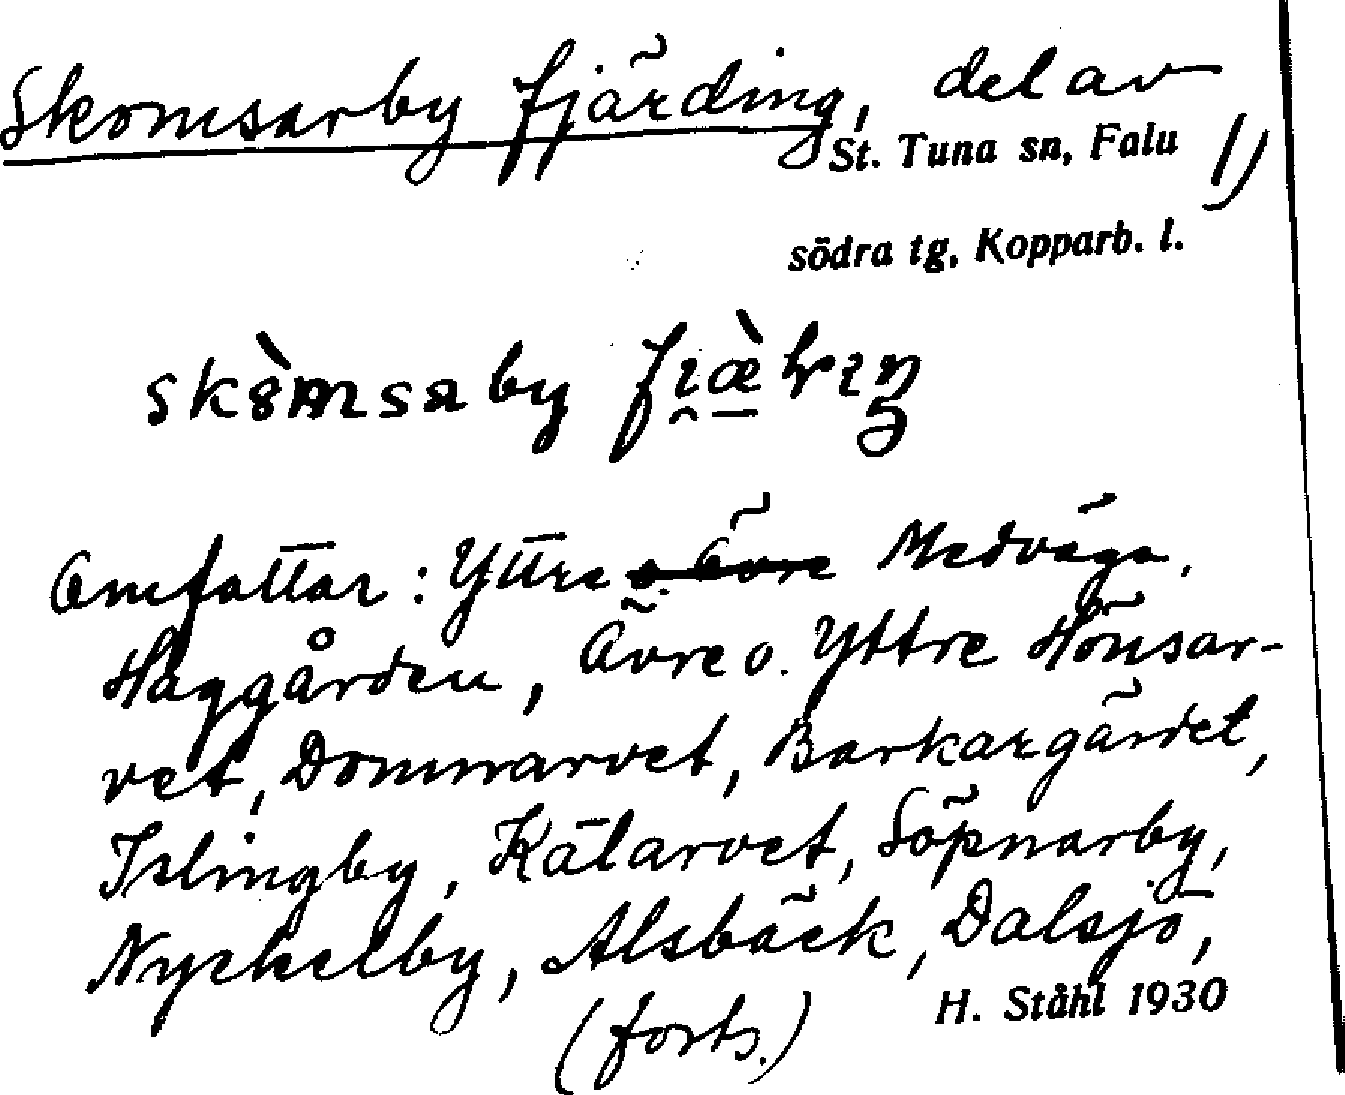 Skomsarby fjärding, del av
St. Tuna sn, Falu 1)
södra tg, Kopparb. l.
Omfattar: Yttre o. Övre Medväga,
Haggården, Övre o. Yttre Hönsar-
vet, Domnarvet, Barkargärdet,
Islingby, Kälarvet, Söpnarby,
Nyckelby, Alsbäck, Dalsjö,
(forts.)
H. Ståhl 1930